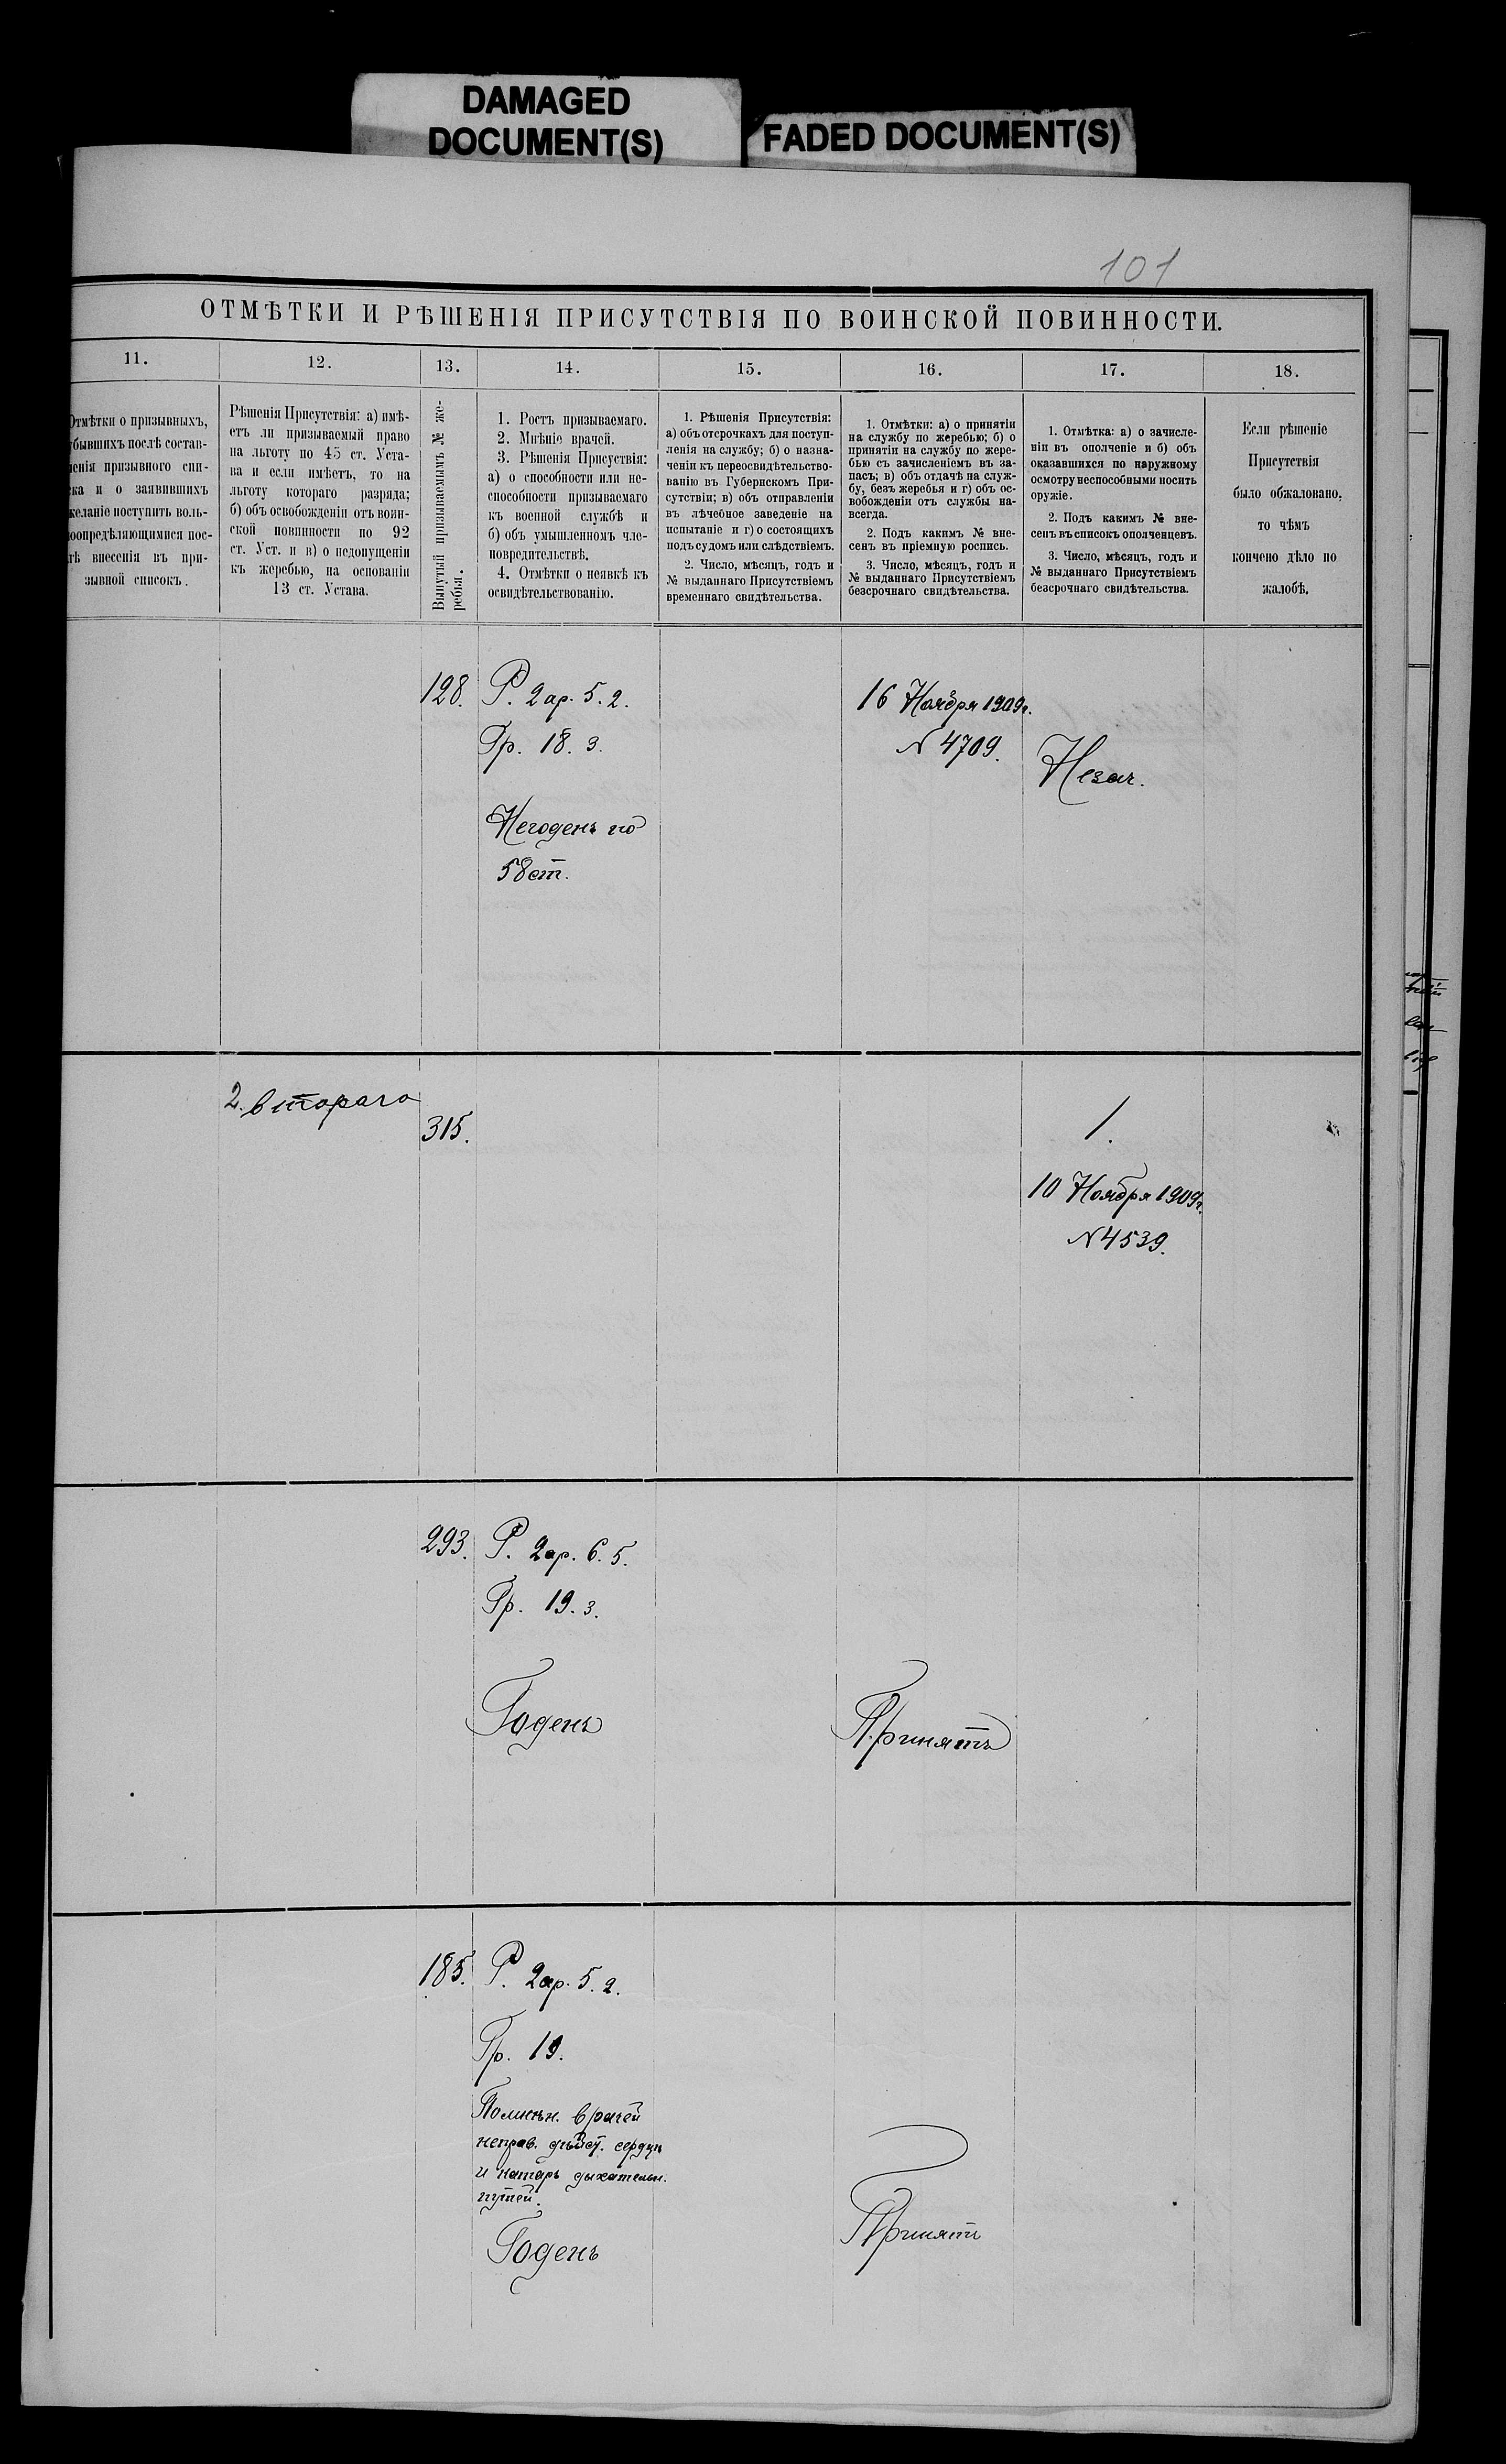 DAMAGED
DOCUMENT(S)
FADED DOCUMENT(S)
101
ОТМѢТКИ И РѢШЕНІЯ ПРИСУТСТВІЯ ПО ВОИНСКОЙ ПОВИННОСТИ.
11.
12.
13.
14.
15.
16.
17.
18.
Отмѣтки о призывныхъ,
бывшихъ послѣ состав-
ленія призывного спи-
ска и о заявившихъ
желаніе поступить воль-
ноопредѣляющимися пос-
лѣ внесенія въ при-
зывной списокъ.
Рѣшенія Присутствія: а) имѣ-
етъ ли призываемый право
на льготу по 45 ст. Уста-
ва и если имѣетъ, то на
льготу котораго разряда;
б) объ освобожденіи отъ воин-
ской повинности по 92
ст. Уст. и в) о недопущеніи
къ жеребью, на основаніи
13 ст. Устава.
Вынутый призываемымъ № же-
ребья.
1. Ростъ призываемаго.
2. Мнѣніе врачей.
3. Рѣшенія Присуствія:
а) о способности или не-
способности призываемаго
къ военной службѣ и
б) объ умышленномъ чле-
новредительствѣ.
4. Отмѣтки о неявкѣ къ
освидѣтельствованію.
1. Рѣшенія Присутствія:
а) объ отсрочкахъ для поступ-
ленія на службу; б) о назна-
ченіи къ переосвидѣтельство-
ванію въ Губернскомъ При-
сутствіи; в) объ отправленіи
въ лѣчебное заведеніе на
испытаніе и г) о состоящихъ
подъ судомъ или слѣдствіемъ.
2. Число, мѣсяцъ, годъ и
№ выданнаго Присутствіемъ
временнаго свидѣтельства.
1. Отмѣтки: а) о принятіи
на службу по жеребью; б) о
принятіи на службу по жере-
бью съ зачисленіемъ въ за-
пасъ; в) объ отдачѣ на служ-
бу, безъ жеребья и г) объ ос-
вобожденіи отъ службы на-
всегда.
2. Подъ какимъ № вне-
сенъ въ пріемную роспись.
3. Число, мѣсяцъ, годъ и
№ выданнаго Присутствіемъ
безсрочнаго свидѣтельства.
1. Отмѣтка: а) о зачисле-
ніи въ ополченіе и б) объ
оказавшихся по наружному
осмотру неспособными носить
оружіе.
2. Подъ какимъ № вне-
сенъ въ списокъ ополченцевъ.
3. Число, мѣсяцъ, годъ и
№ выданнаго Присутствіемъ
безсрочнаго свидѣтельства.
Если рѣшеніе
Присутствія
было обжаловано,
то чѣмъ
кончено дѣло по
жалобѣ.
128.
Р. 2 ар. 5. 2.
Гр. 18. 3.
Негоденъ по
58 ст.
16 Ноября 1909 г.
N 4709.
Незач.
2. втораго
315.
1.
10 Ноября 1909 г.
N 4539.
293.
Р. 2 ар. 6. 5.
Гр. 19. 3.
Годенъ
Принятъ
185.
Р. 2 ар. 5. 2.
Гр. 19.
По мнѣн. врачей
неправ. дѣйст. сердца
и катаръ дыхательн.
путей.
Годенъ
Принятъ